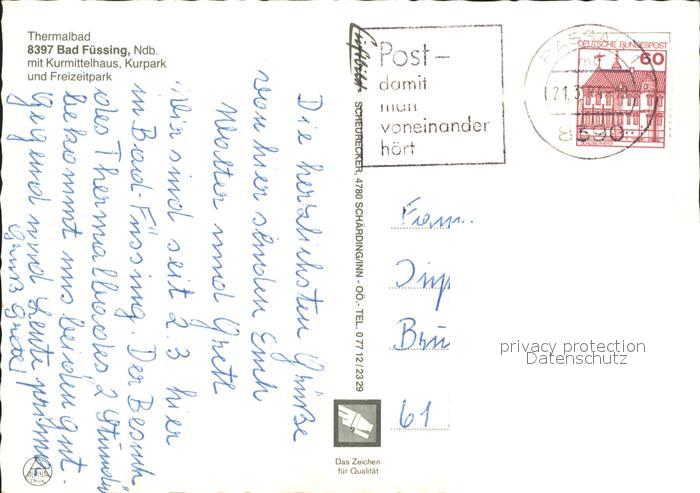 Thermalbad
8397 Bad Füssing, Ndb.
mit Kurmittelhaus, Kurpark
und Freizeitpark
Die herzlichsten Grüße
von hier senden Euch
Walter und Greth
Wir sind seit 2.3 hier
in Bad-Füssing. Der Besuch
des Thermalbades, 2 Stunden
bekommt uns beiden gut.
Gegend und Leute prima.
Gruß Grete
Luftbild SCHEURECKER, 4780 SCHÄRDING/INN - OÖ. - TEL. 0 77 12 / 23 29
Das Zeichen
für Qualität
Post -
damit
man
voneinander
hört
PASSA
21.3.
8390
DEUTSCHE BUNDESPOST
60
Fam.
Brü
61
privacy protection
Datenschutz